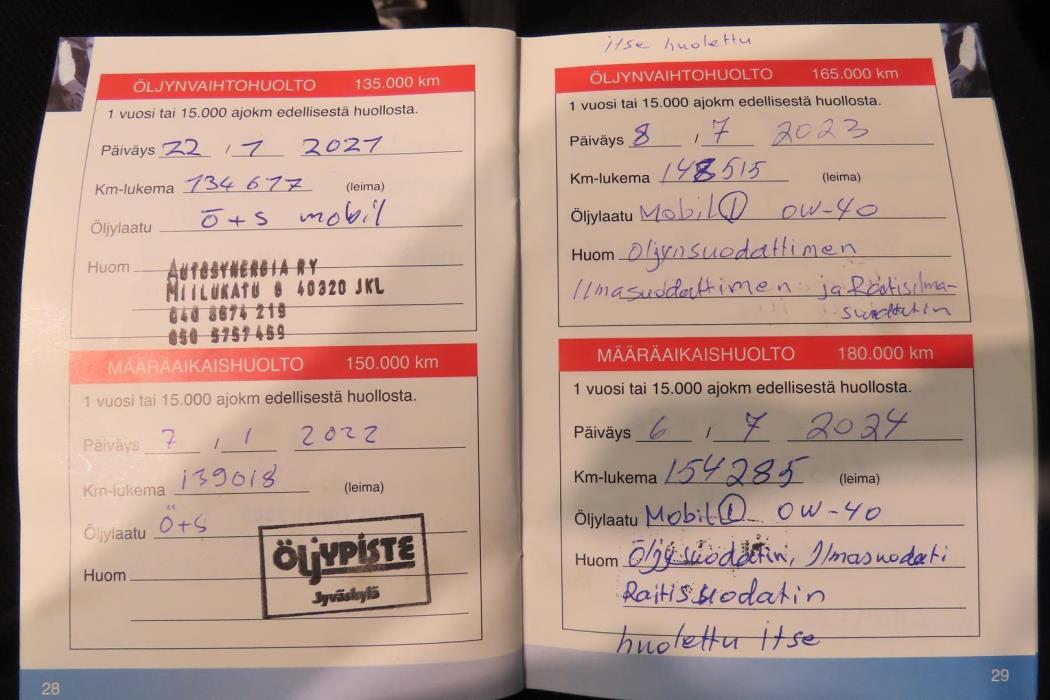 ÖLJYNVAIHTOHUOLTO 135.000 km
1 vuosi tai 15.000 ajokm edellisestä huollosta.
Päiväys 22 / 1 2021
Km-lukema 134 677 (leima)
Öljylaatu ö+s mobil
Huom
AUTOSYNERGIA RY
MIILUKATU 8 40320 JKL
040 8674 219
050 5757 459
MÄÄRÄAIKAISHUOLTO 150.000 km
1 vuosi tai 15.000 ajokm edellisestä huollosta.
Päiväys 7 / 1 2022
Km-lukema 139018 (leima)
Öljylaatu Ö+S
Huom
ÖLJYPISTE
Jyväskylä
28
itse huolettu
ÖLJYNVAIHTOHUOLTO 165.000 km
1 vuosi tai 15.000 ajokm edellisestä huollosta.
Päiväys 8 / 7 2023
Km-lukema 148515 (leima)
Öljylaatu Mobil 1 0W-40
Huom Öljynsuodattimen
Ilmasuodattimen ja Raitisilma-
suodatin
MÄÄRÄAIKAISHUOLTO 180.000 km
1 vuosi tai 15.000 ajokm edellisestä huollosta.
Päiväys 6 / 7 2024
Km-lukema 154285 (leima)
Öljylaatu Mobil 1 0W-40
Huom Öljysuodatin, Ilmasuodati
Raitissuodatin
huolettu itse
29